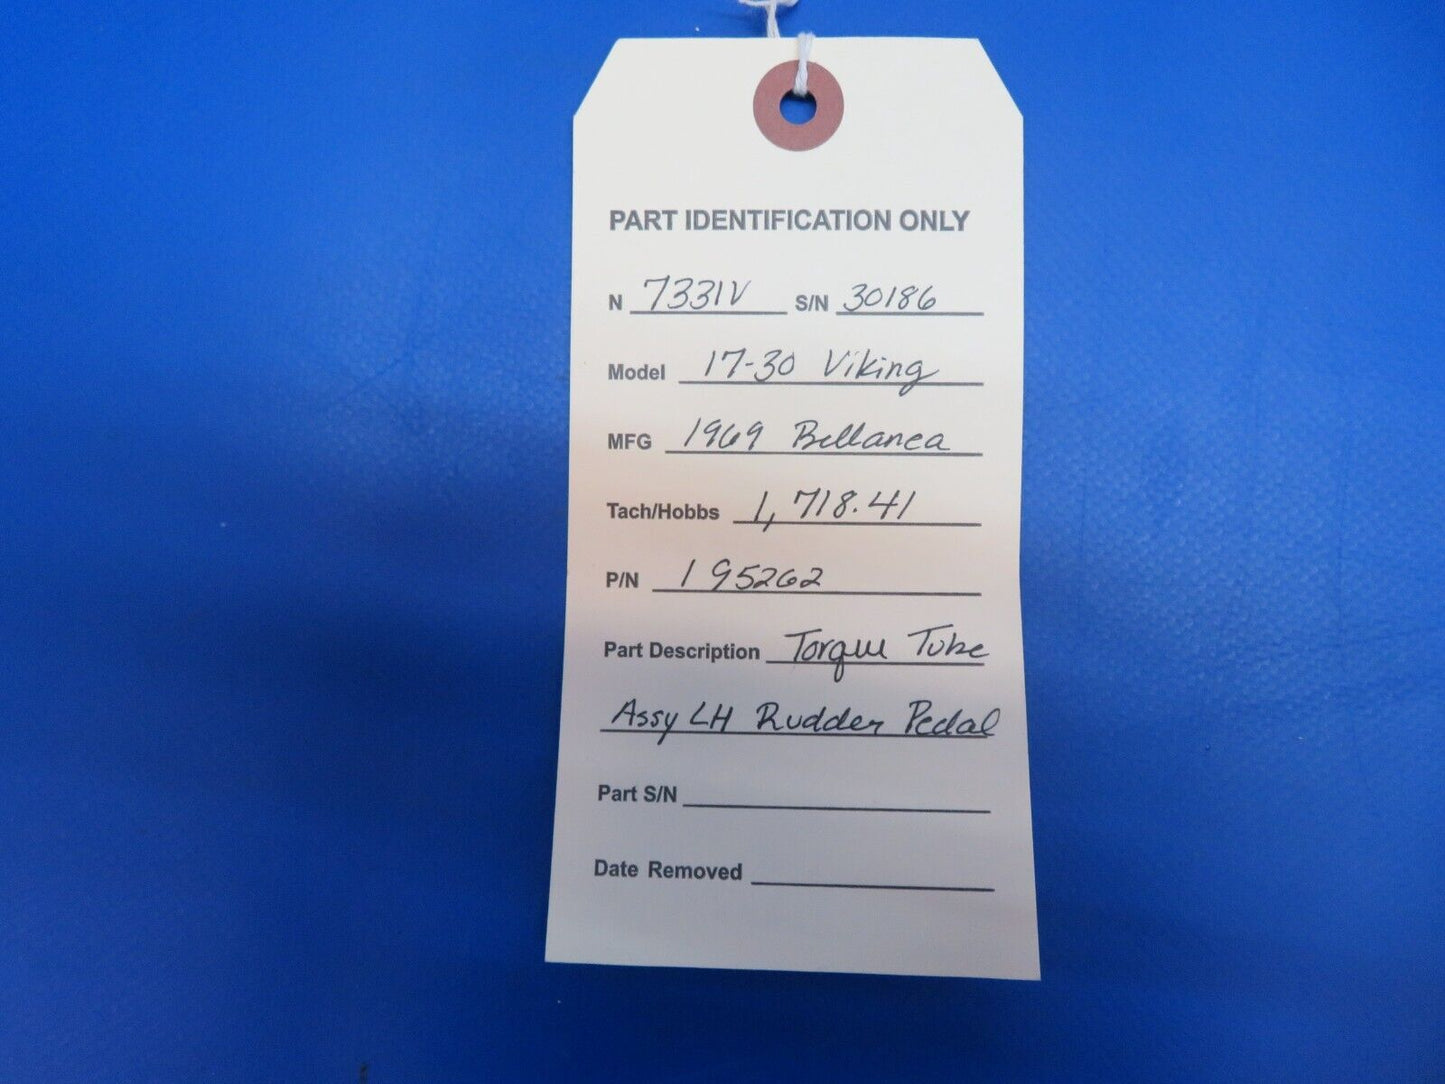 PART IDENTIFICATION ONLY
N 7331V S/N 30186
Model 17-30 Viking
MFG 1969 Bellanca
Tach/Hobbs 1,718.41
P/N 195262
Part Description Torque Tube
Assy LH Rudder Pedal
Part S/N
Date Removed